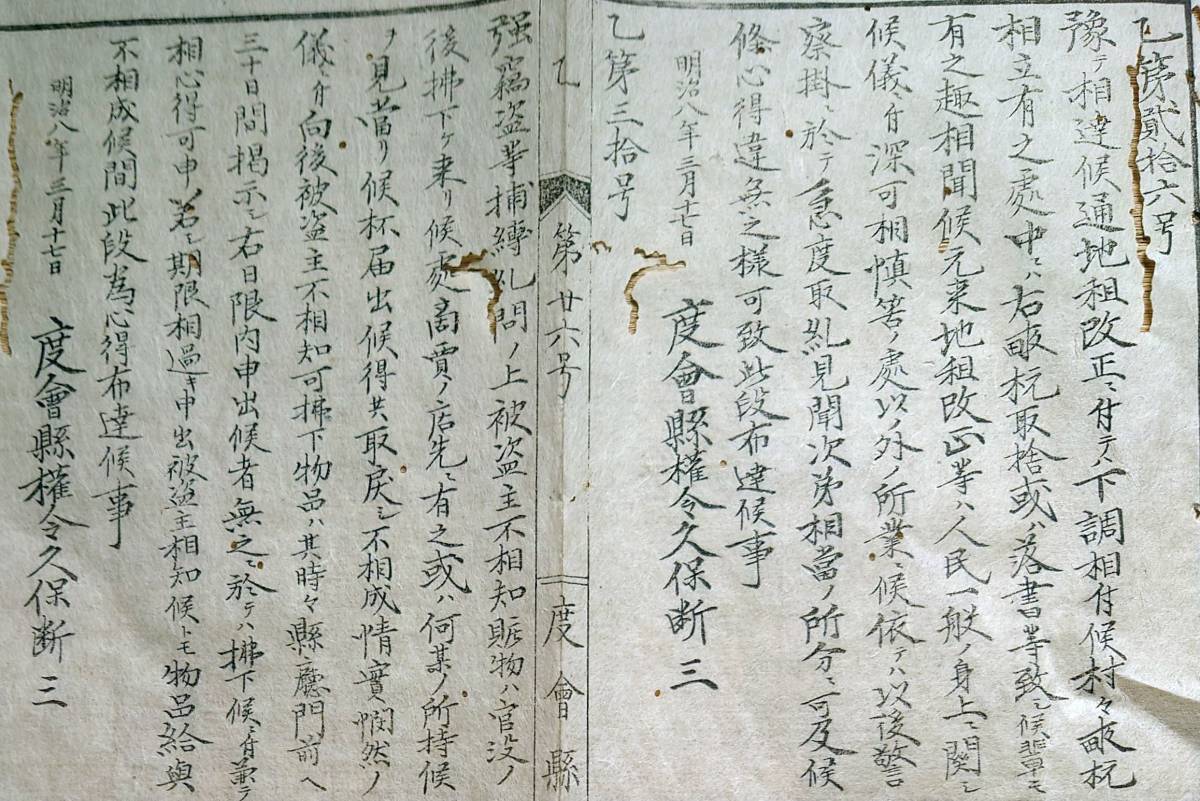 乙第貳拾六号
豫テ相達候通地租改正ニ付テハ下調相付候村々畝杭
相立有之處中ニハ右畝杭取捨或ハ落書等致シ候輩モ
有之趣相聞候元来地租改正等ハ人民一般ノ身上ニ関シ
候儀ニ付深可相慎筈ノ處以ノ外ノ所業ニ候依テハ以後警
察掛ニ於テ急度取糺見聞次第相當ノ所分ニ可及候
條心得違無之様可致此段布達候事
明治八年三月十七日
度會縣權令久保断三
乙第三拾号
乙 第廿六号 度會縣
强竊盗等捕縛糺問ノ上被盗主不相知賍物ハ官没ノ
後拂下ケ来リ候處商賈ノ店先ニ有之或ハ何某ノ所持候
ヲ見當リ候杯届出候得共取戻シ不相成情實憫然ノ
儀ニ付向後被盗主不相知可拂下物品ハ其時々縣廳門前ヘ
三十日間掲示シ右日限内申出候者無之ニ於テハ拂下候ニ付兼テ
相心得可申ノ若シ期限相過キ申出被盗主相知候トモ物品給與
不相成候間此段為心得布達候事
明治八年三月十七日
度會縣權令久保断三